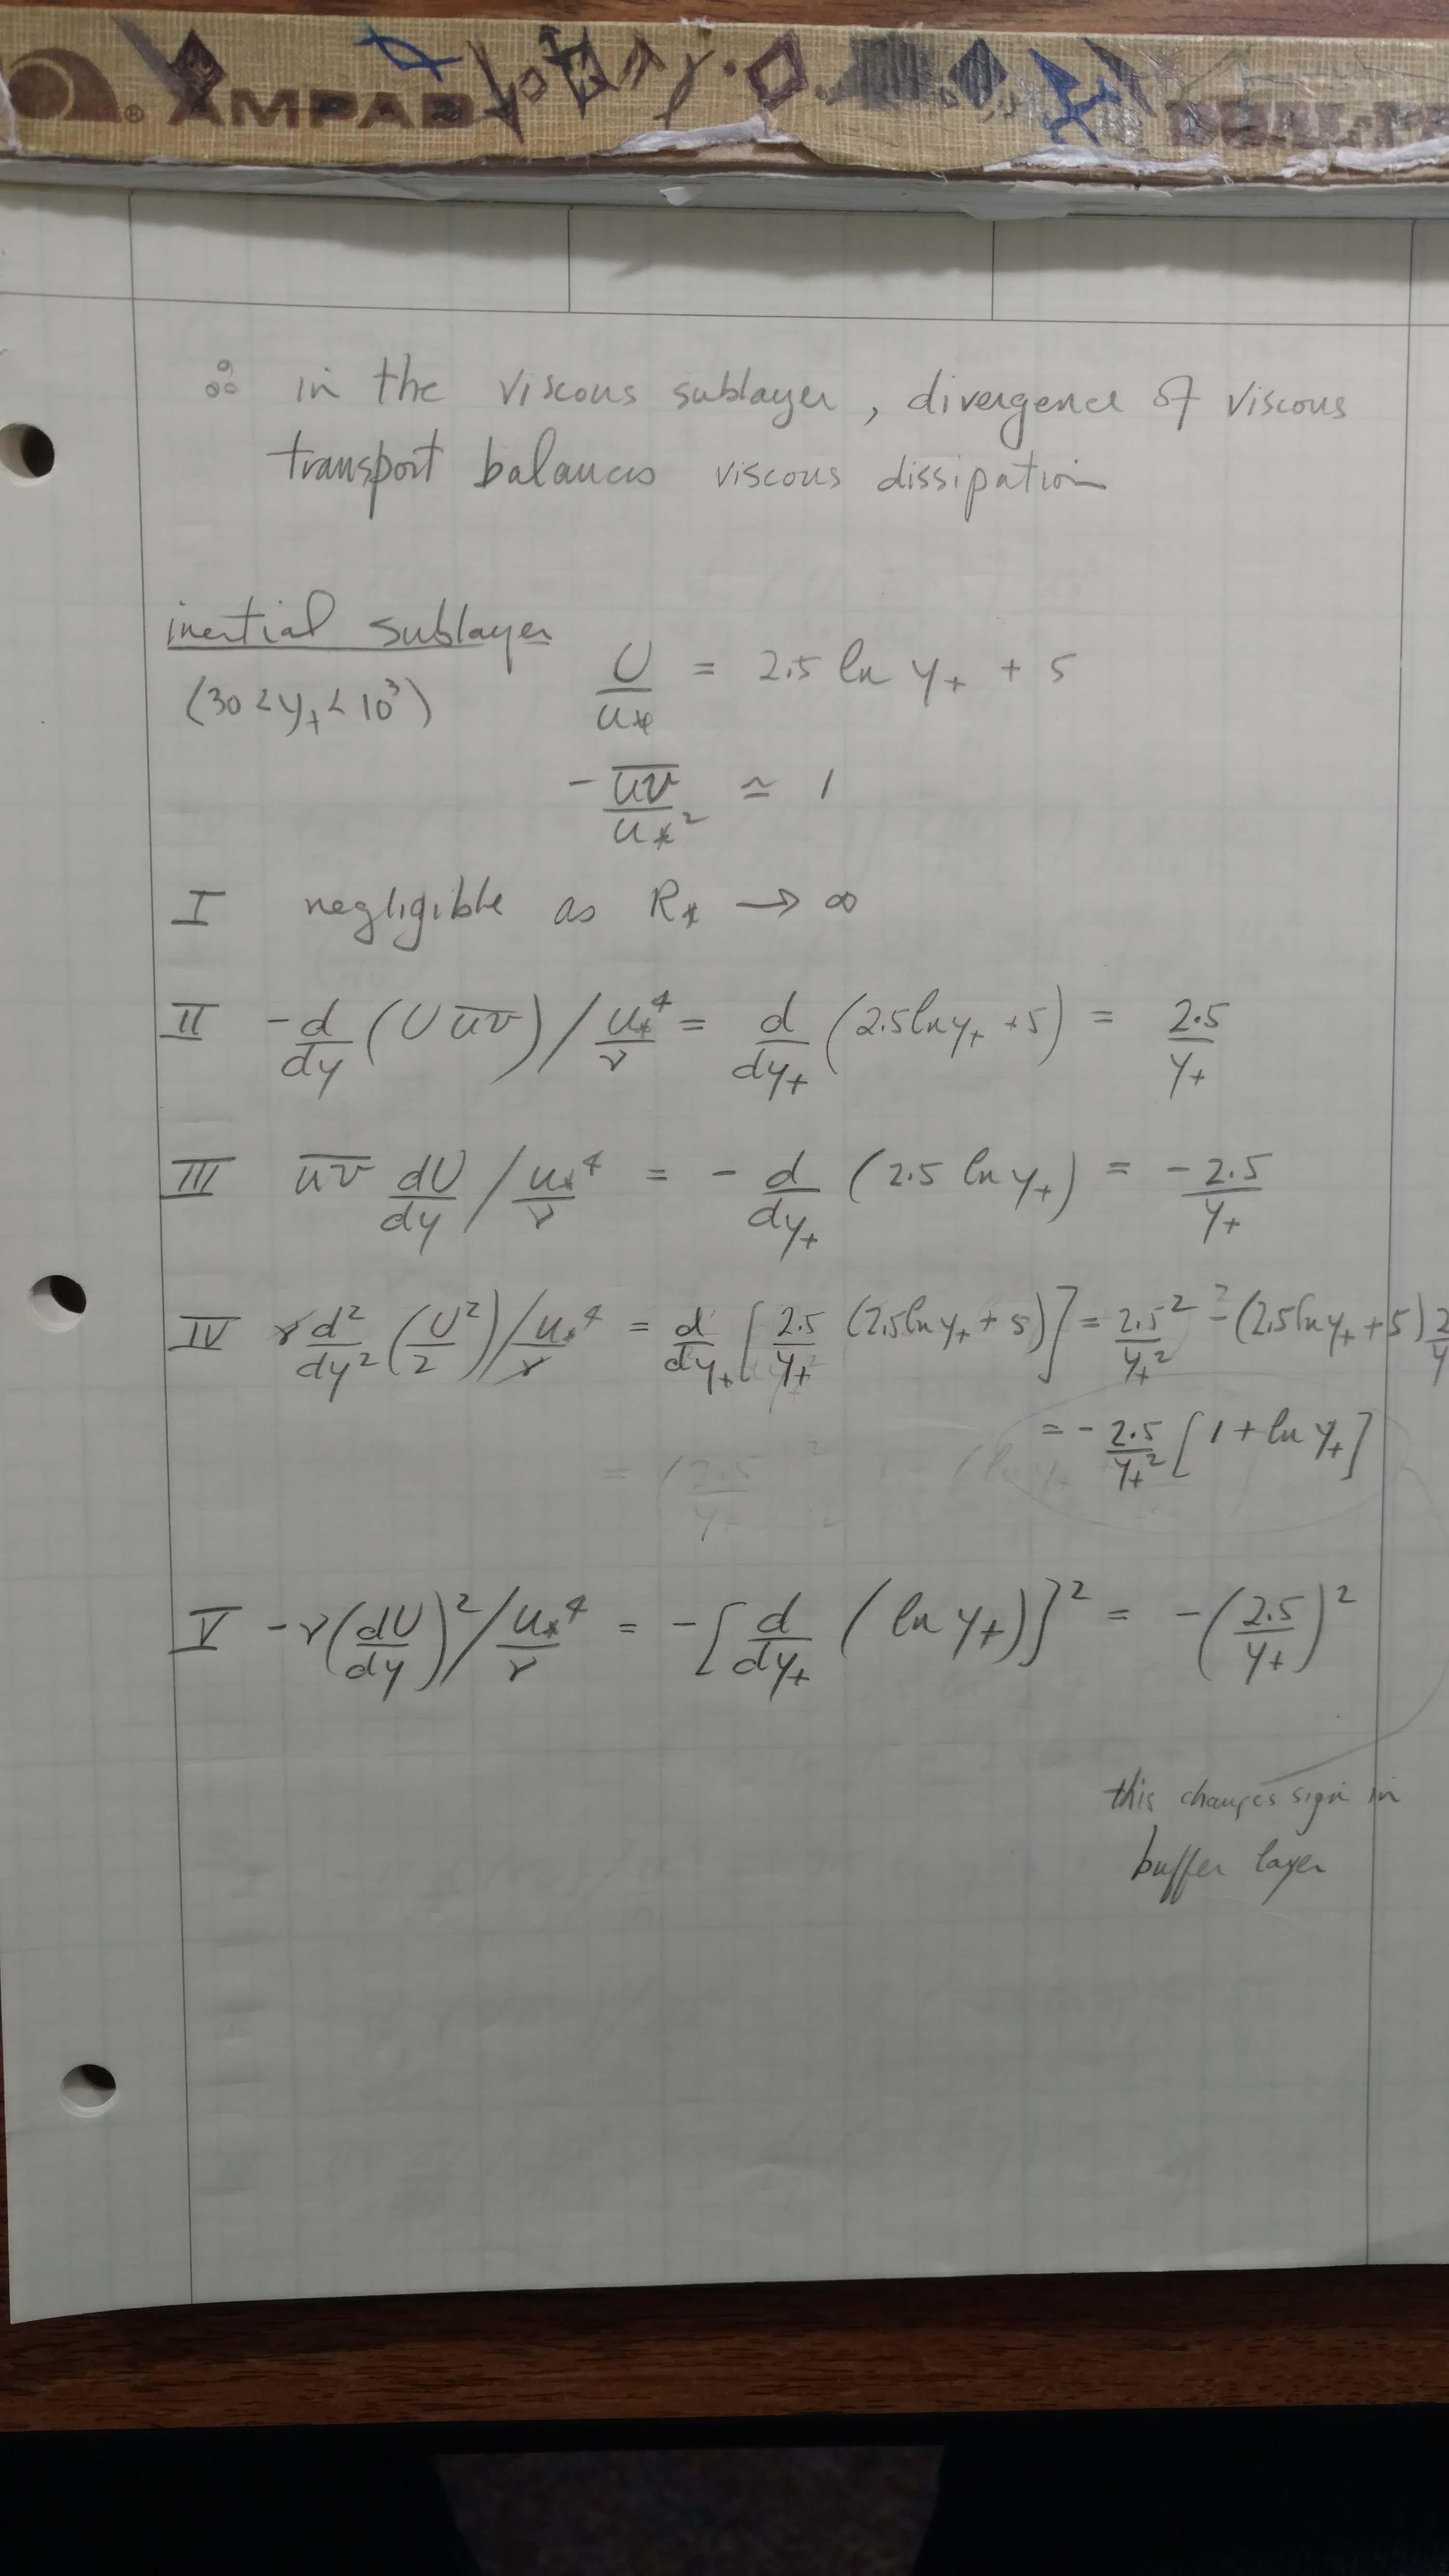 ® AMPAD DUAL-PA
∴ in the viscous sublayer, divergence of viscous
transport balances viscous dissipation
inertial sublayer
(30 < y₊ < 10³)
U/u* = 2.5 ln y₊ + 5
- u̅v̅/u*² ≃ 1
I negligible as R* → ∞
II -d/dy (U u̅v̅) / u*⁴/ν = d/dy₊ (2.5 ln y₊ + 5) = 2.5/y₊
III u̅v̅ dU/dy / u*⁴/ν = - d/dy₊ (2.5 ln y₊) = - 2.5/y₊
IV ν d²/dy² (U²/2) / u*⁴/ν = d/dy₊ [2.5/y₊ (2.5 ln y₊ + 5)] = 2.5²/y₊² - (2.5 ln y₊ + 5) 2
= - 2.5/y₊² [1 + ln y₊]
V - ν (dU/dy)² / u*⁴/ν = - [d/dy₊ (ln y₊)]² = - (2.5/y₊)²
this changes sign in
buffer layer